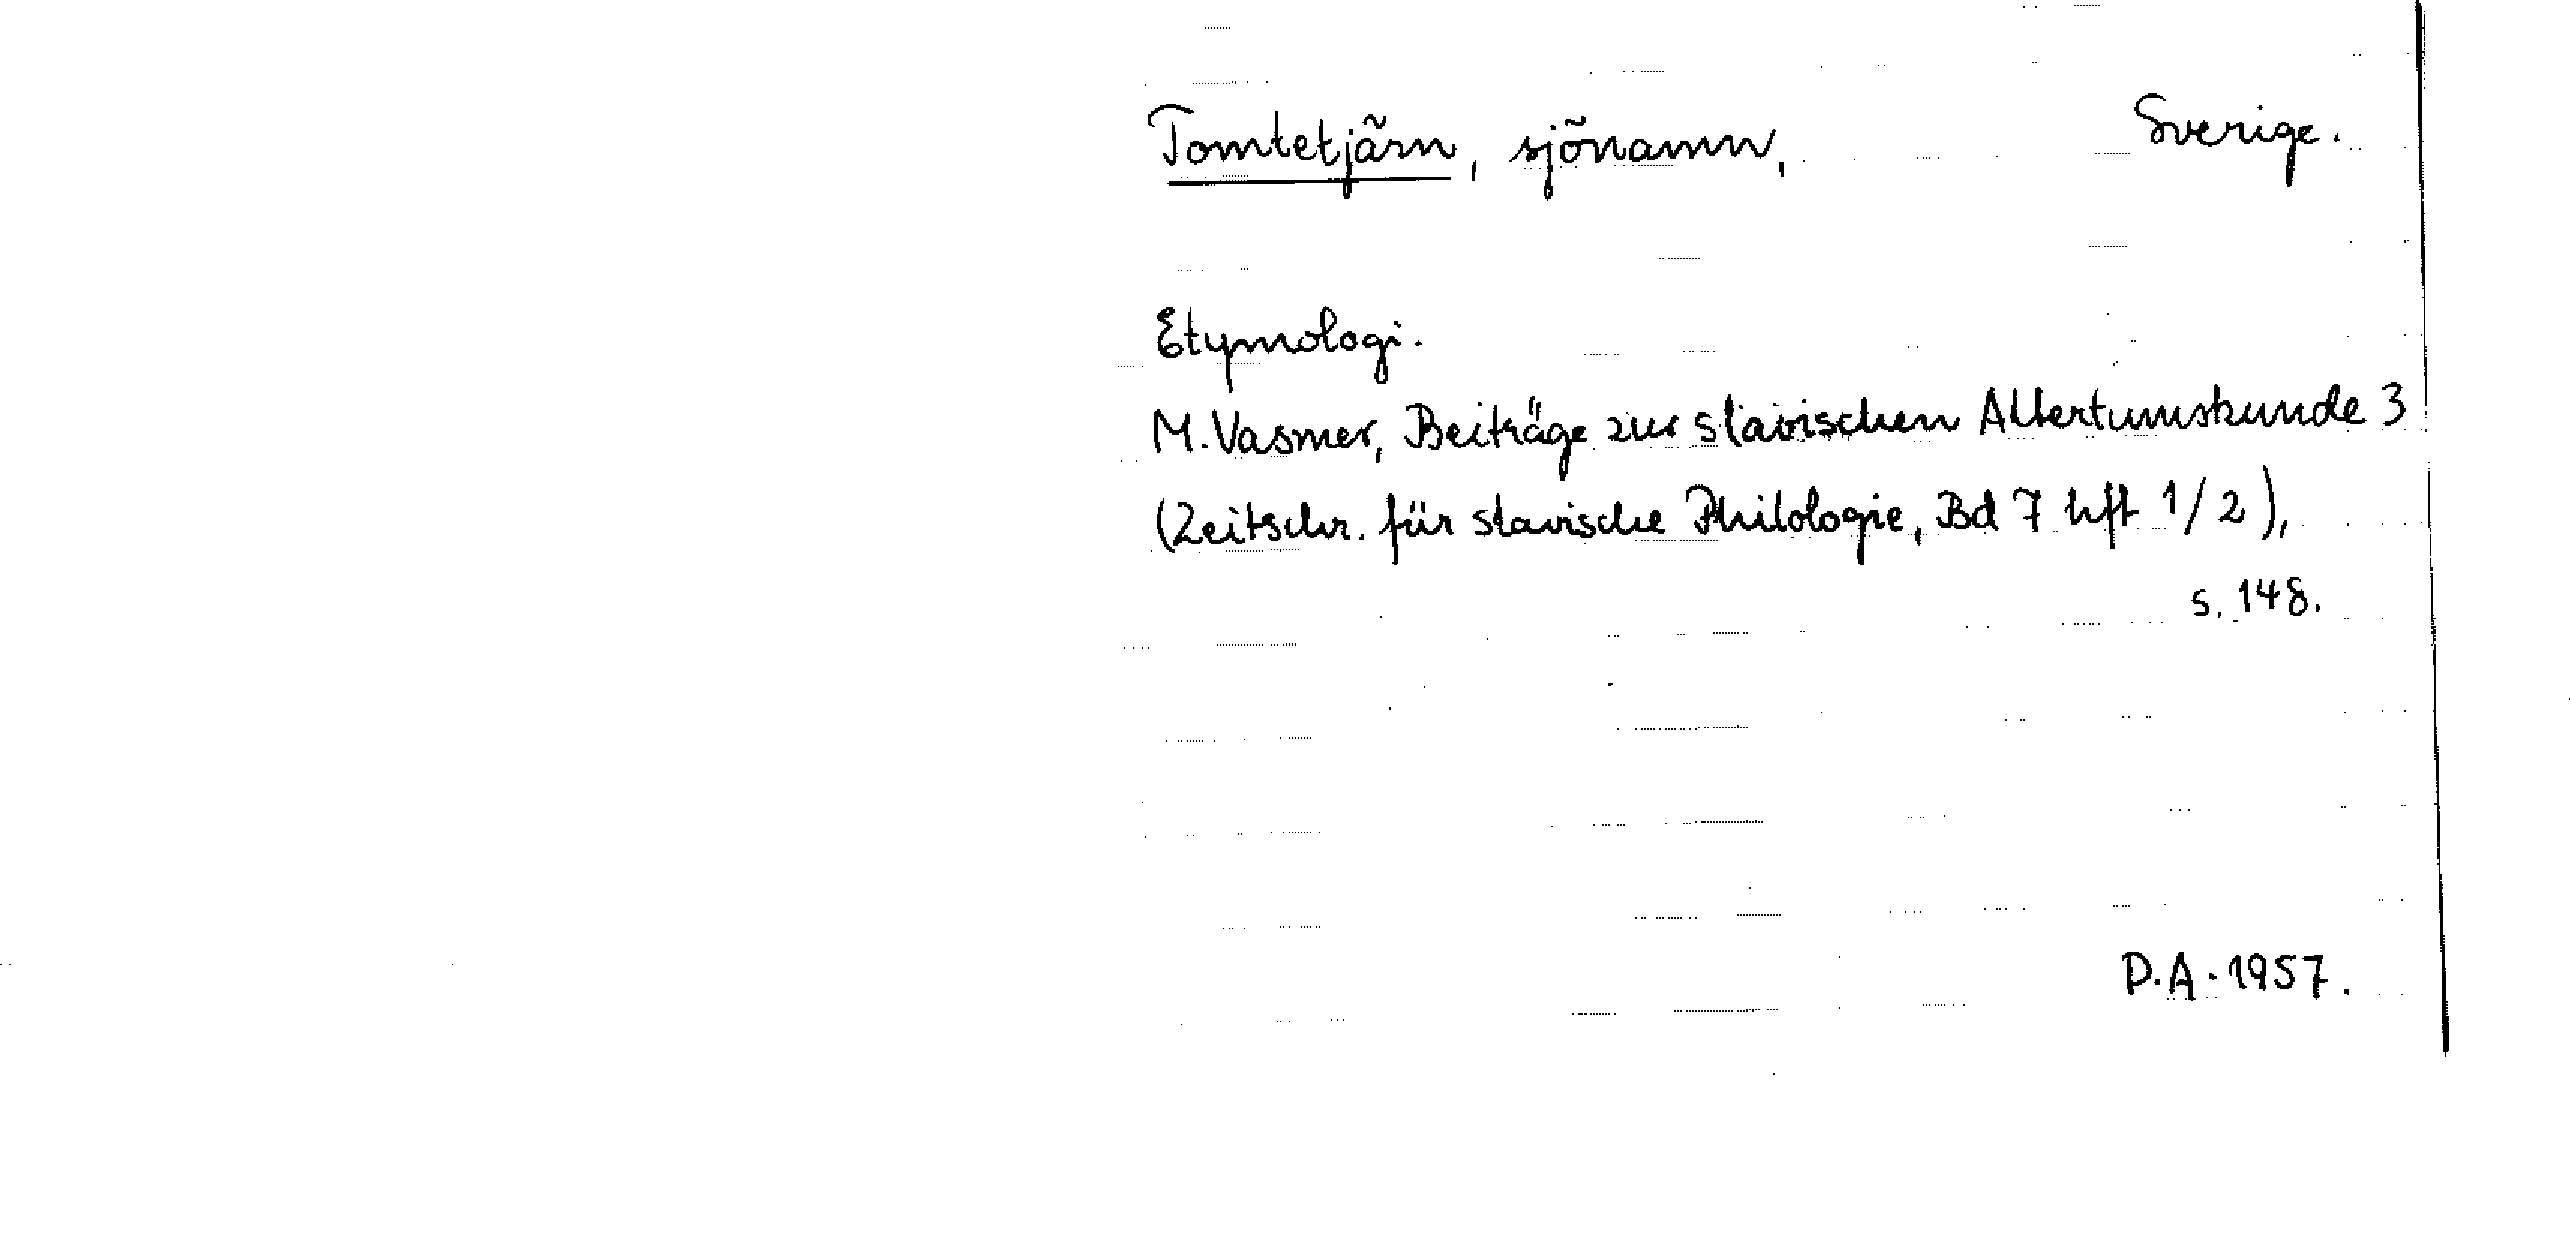 Tomtetjärn, sjönamn, Sverige.
Etymologi.
M. Vasmer, Beiträge zur slavischen Altertumskunde 3
(Zeitschr. für slavische Philologie, Bd 7 hft 1/2),
s. 148.
D.A. 1957.